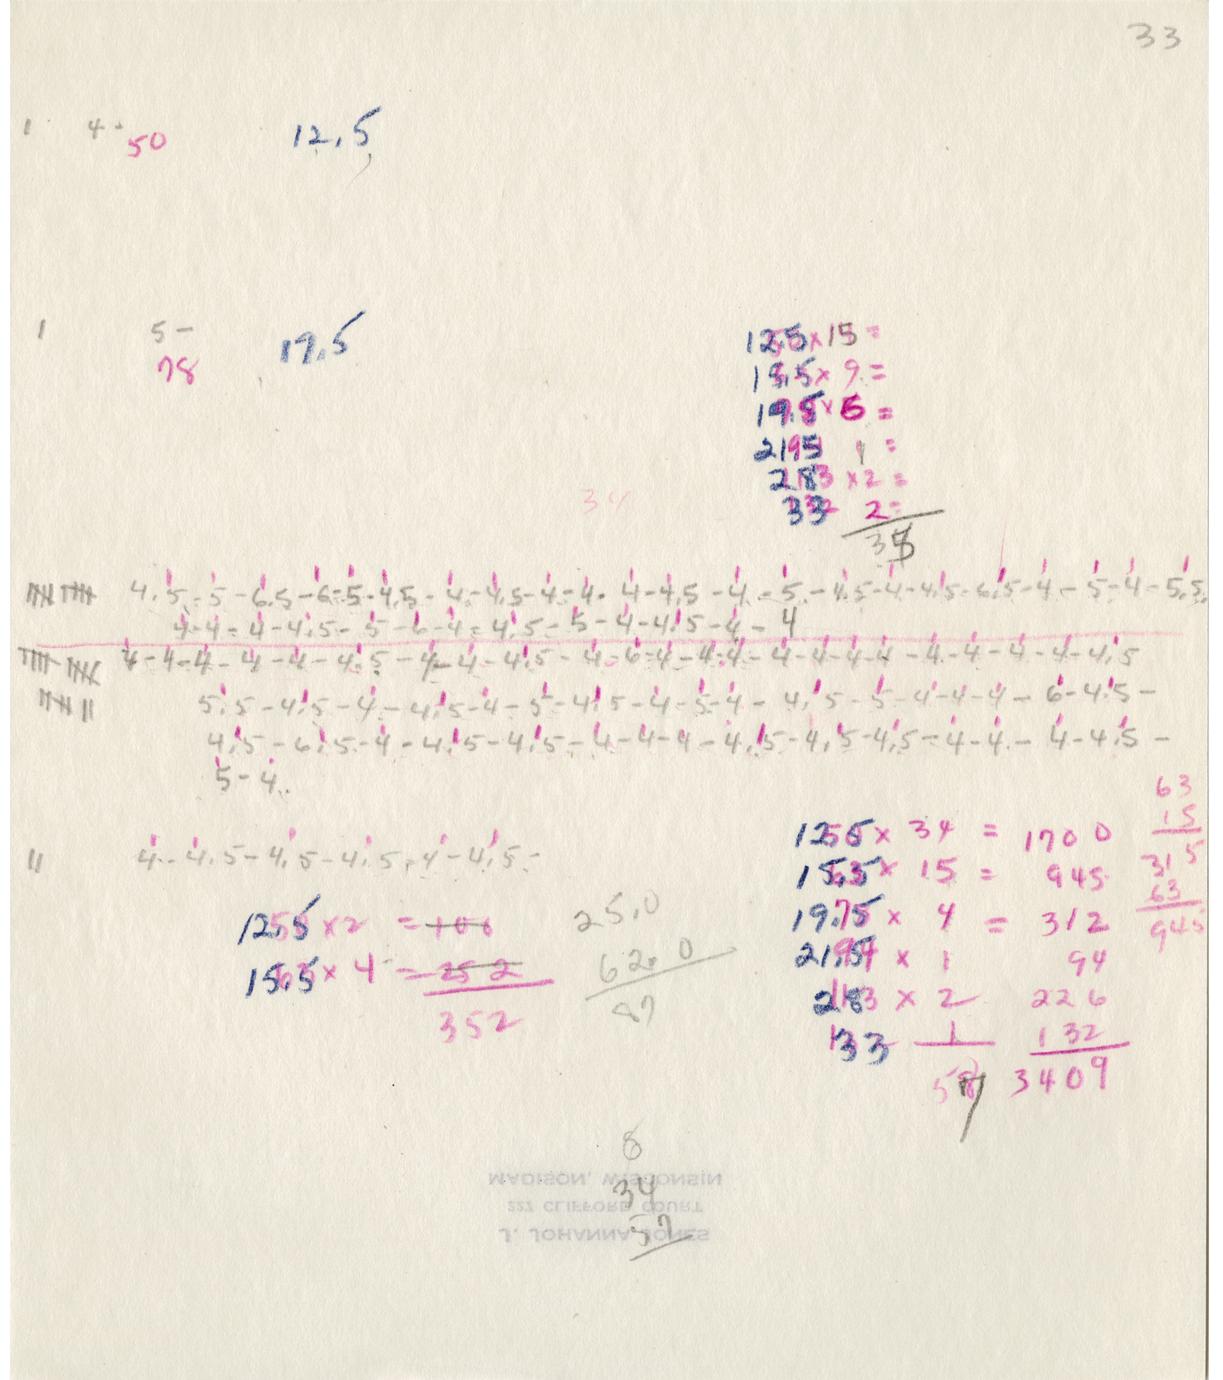 33
1 4-
50 12.5
1 5-
78 19.5
12.5 x 15 =
15.5 x 9 =
19.5 x 5 =
21.5 1 =
28 x 2 =
33 2 =
34
4.5-5-6.5-6-5-4.5-4-4.5-4-4-4-4.5-4-5-4.5-4-4.5-6.5-4-5-4-5.5,
4-4-4-4.5-5-6-4-4.5-5-4-4.5-4-4
4-4-4-4-4-4.5-4-4-4.5-4-6-4-4-4-4-4-4-4-4-4-4-4-4.5
5.5-4.5-4-4.5-4-5-4.5-4-5-4-4.5-5-4-4-4-6-4.5-
4.5-6.5-4-4.5-4.5-4-4-4-4.5-4.5-4.5-4-4-4-4.5-
5-4.
11 4-4.5-4.5-4.5-4-4.5-
63
15
315
63
945
12.5 x 34 = 1700
15.5 x 15 = 945
19.5 x 4 = 312
21.5 x 1 94
28 x 2 226
33 1 132
57 3409
12.5 x 2 = 100
15.5 x 4 - 252
352
25.0
62.0
87
8
34
57
MADISON, WISCONSIN
227 CLIFFORD COURT
J. JOHANNA JONES